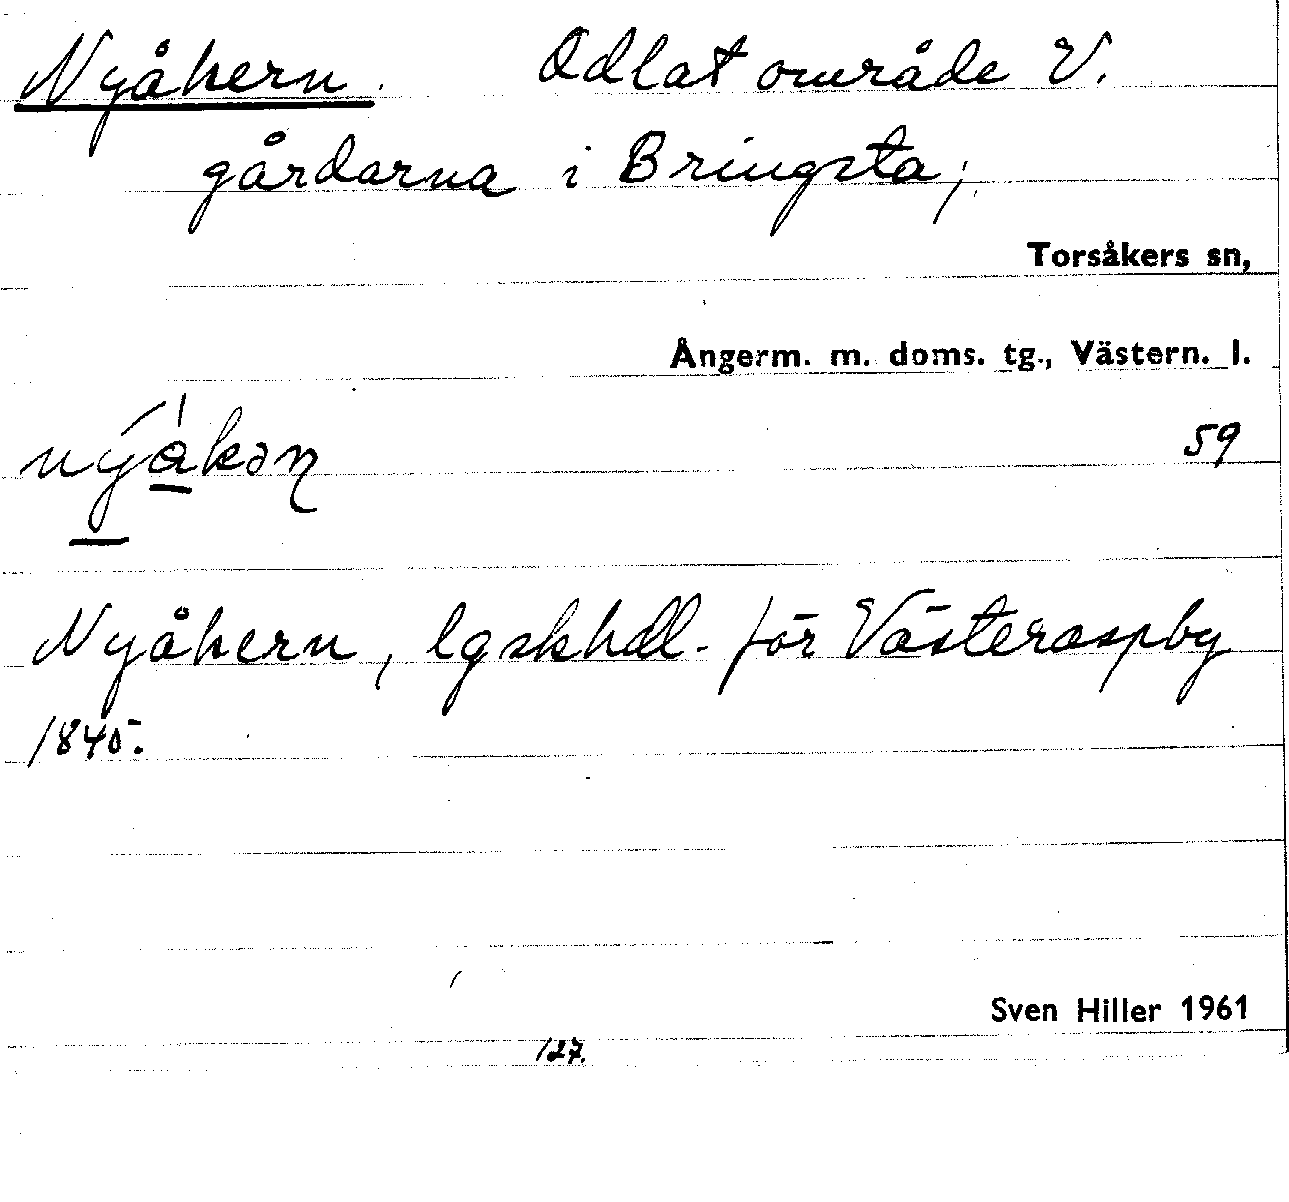 Nyåkern. Odlat område V.
gårdarna i Bringsta;
Torsåkers sn,
Ångerm. m. doms. tg., Västern. l.
59
Nyåkern, lgskhdl. för Västeraspby
1845.
Sven Hiller 1961
127.